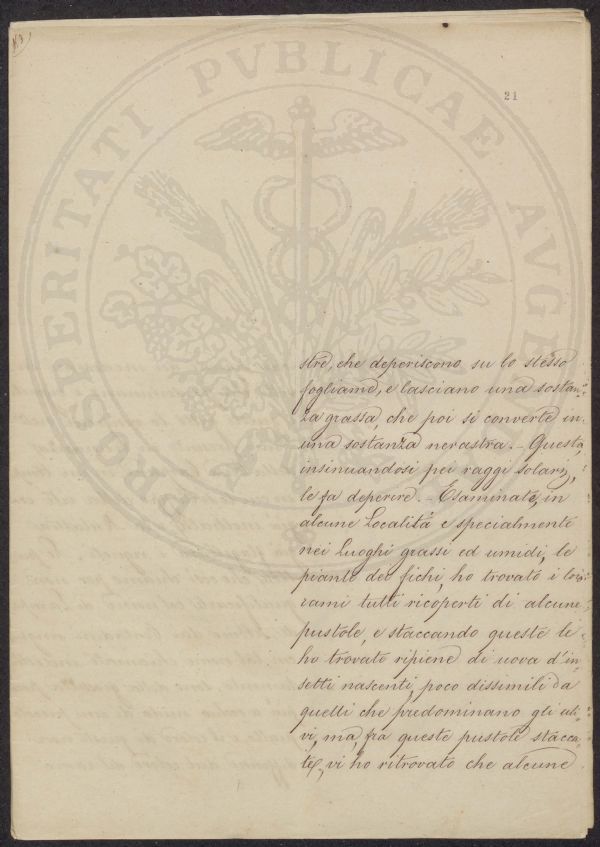 21
PROSPERITATI PVBLICAE AVGE
stre, che deperiscono su lo stesso
fogliame, e lasciano una sostan-
za grassa, che poi si converte in
una sostanza nerastra. - Questa,
insinuandosi pei raggi solari,
le fa deperire. - Esaminate, in
alcune Località e specialmente
nei Luoghi grassi ed umidi, le
piante dei fichi, ho trovato i loro
rami tutti ricoperti di alcune
pustole, e staccando queste le
ho trovate ripiene di uova d'in-
setti nascenti, poco dissimili da
quelli che predominano gli uli-
vi, ma, fra queste pustole stacca-
te, vi ho ritrovato che alcune